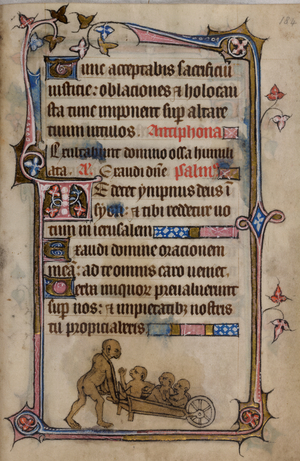 184
Tunc acceptabis sacrificiū
iusticie: oblaciones & holocau
sta tunc imponent sup altare
tuum uitulos. Antiphona
Exultabunt domino ossa humili
ata. Exaudi dñe. psalm
Te decet ympnus deus ī
syon: & tibi reddetur uo
tum in ierusalem
Exaudi domine oracionem
meā: ad te omnis caro ueniet.
Uerba iniquor preualuerunt
sup nos: & impietatib; nostris
tu propiciaberis